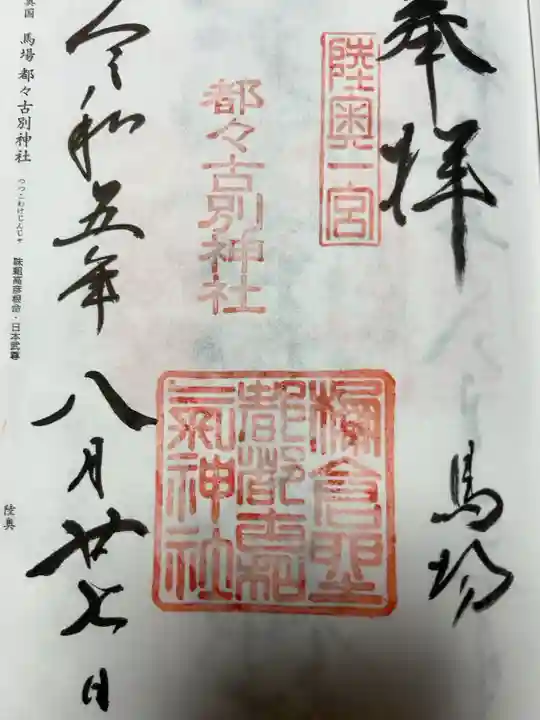 奉拝
馬場
陸奥一宮
都々古別神社
令和五年
八月廿七日
奥国 馬場 都々古別神社
つつこわけじんじゃ
味耜高彦根命・日本武尊
陸奥